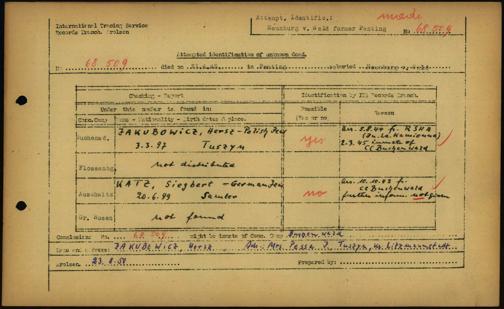 International Tracing Service
Records Branch. Arolsen
Attempt. Identific.: made
Neunburg v. Wald former Penting
No 68 509
Attempted identification of unknown dead.
No. 68 509 died on in Penting reburied Neunburg v. Wald
Checking - Report
Identification by ITS Records Branch.
Under this number is found:
Conc. Camp Name - Nationality - Birth dates & place.
Possible
(Yes or no)
Reason
Buchenwd. JAKUBOWICZ, Hersz - Polish Jew
3.3.97 Tuszyn
yes
arr. 5.8.44 fr. KSHA
2.3.45 inmate of
CC Buchenwald
Flossenbg. not distributed
Auschwitz KATZ, Siegbert - German Jew
20.6.99 Samter
no
arr. 10.10.43 fr.
CC Buchenwald
further inform. not given
Gr. Rosen not found
Conclusion: No. 68 509 might be inmate of Conc. Camp Buchenwald
JAKUBOWICZ Hersz Tuszyn, Litzmannstadt
Arolsen, 23.8.50 Prepared by: